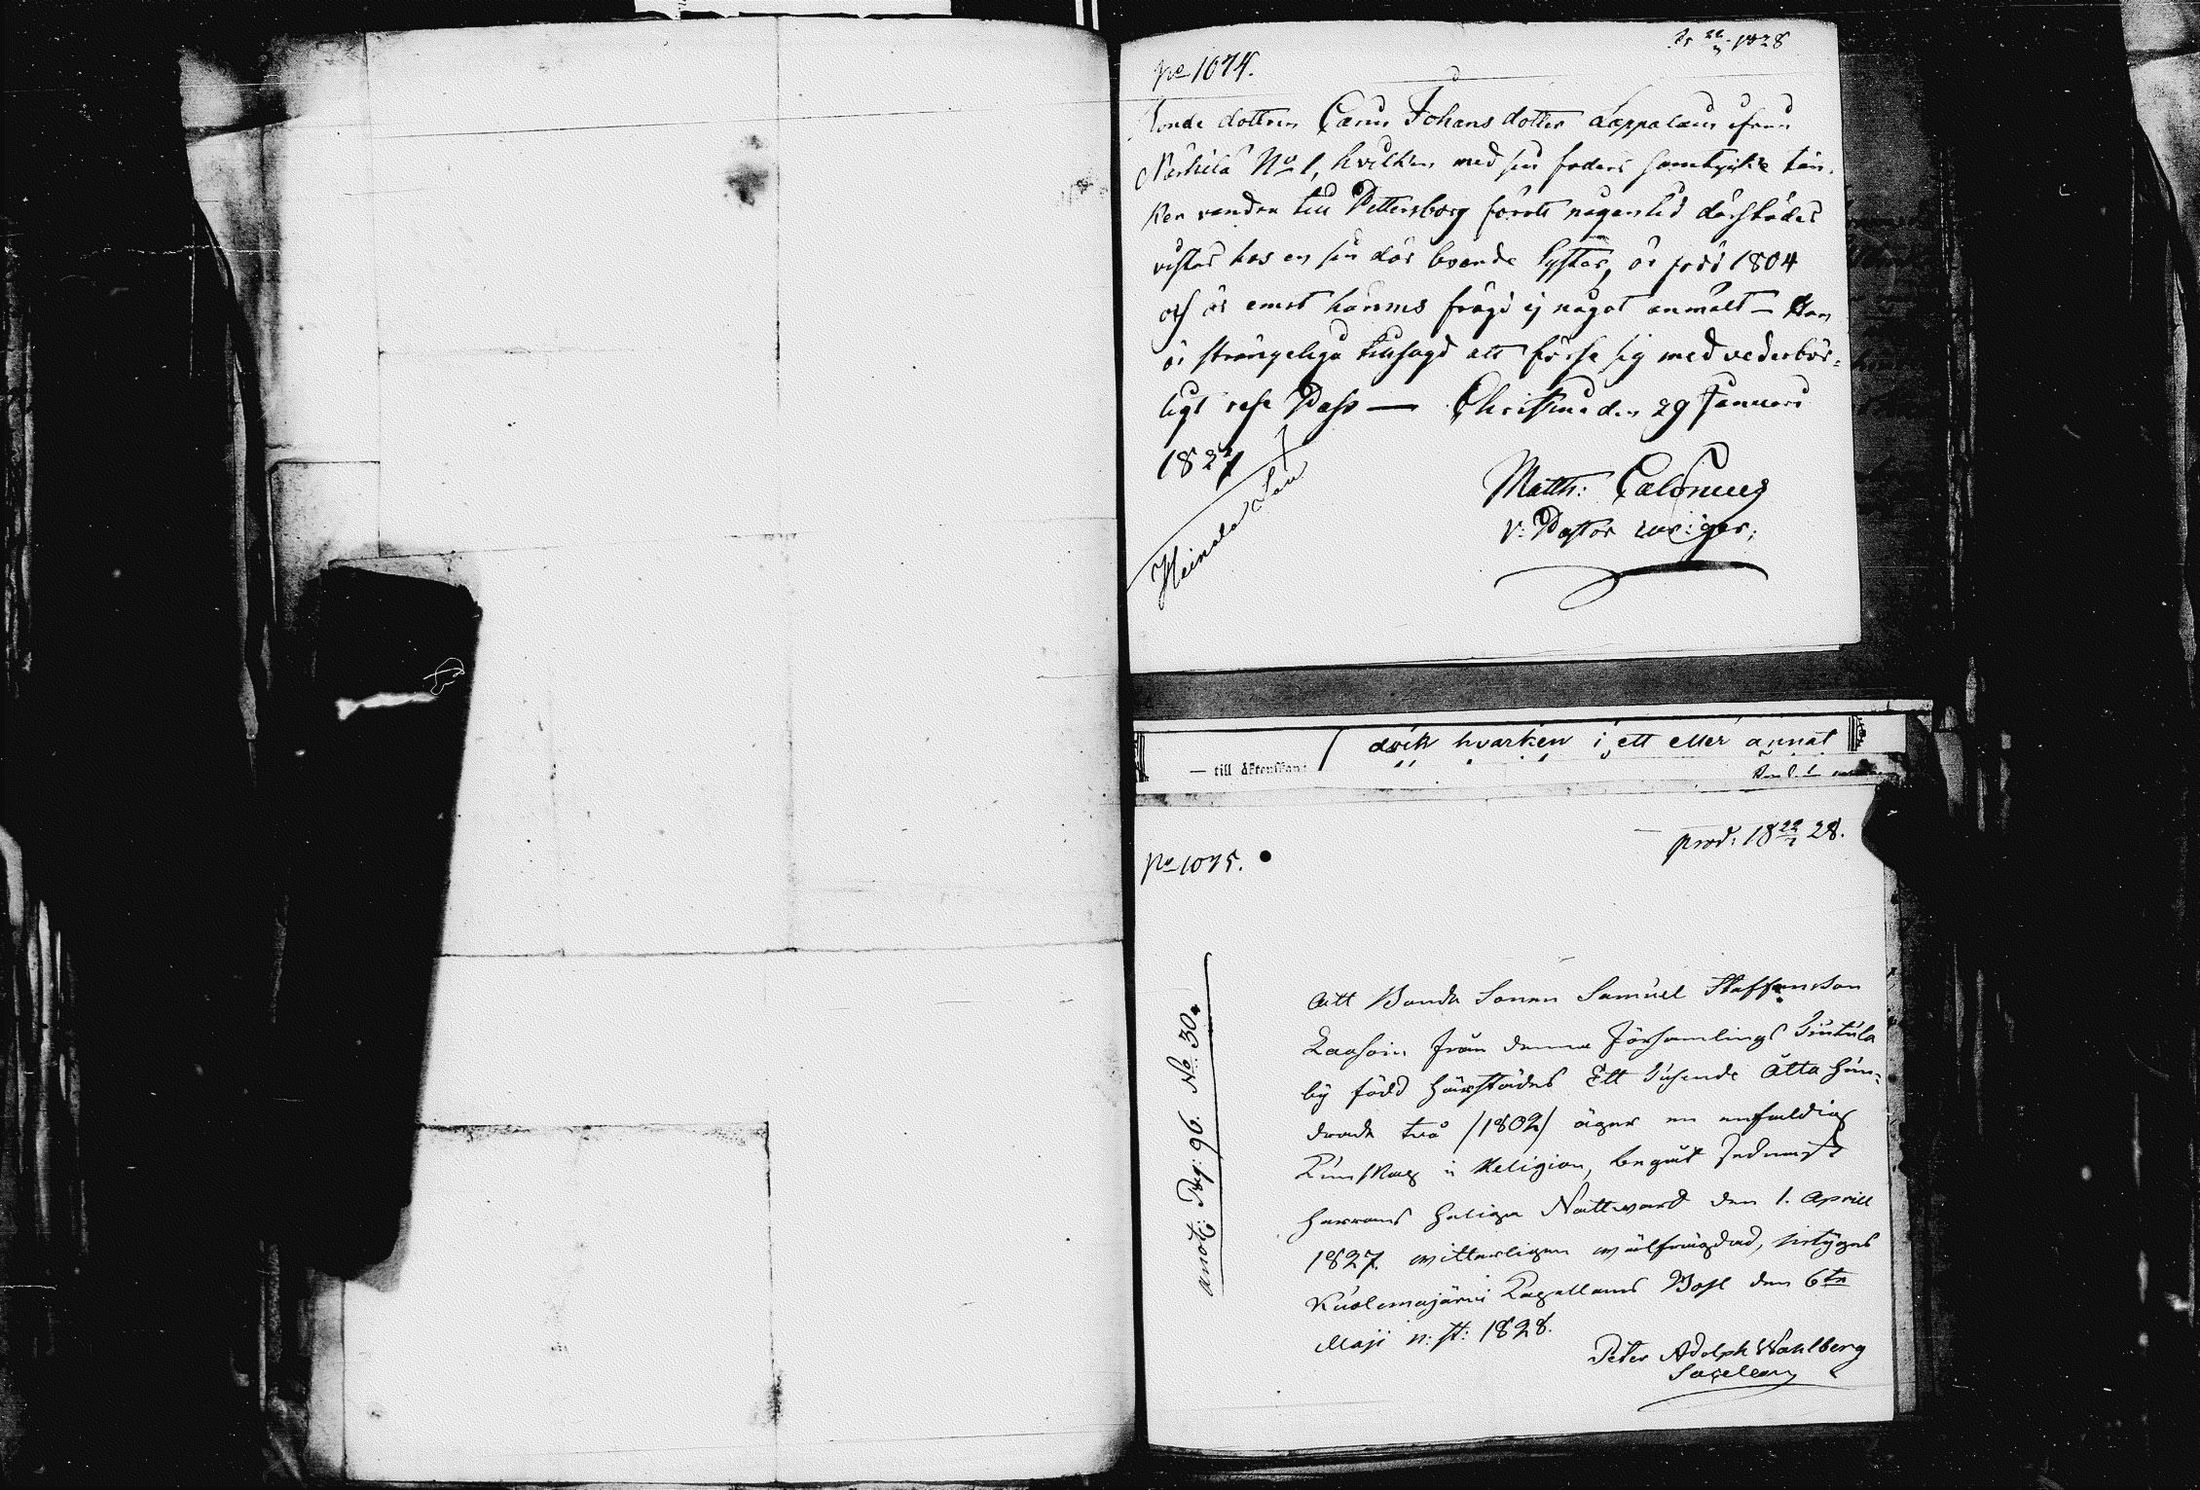 No 1074.
1828
Bonde dottren Carin Johans dotter Lappalain ifrån
No 1, hvilken med sin faders samtycke tän-
ker vandra till Pettersborg förott någon tid därstädes
vistas hos en sin där boende Syster, är född 1804
och är emot hännes frägd ej något anmält — Hon
är strängeligen tillsagd att förse sig med vederbör-
ligt rese Pass — Christina den 29 Januari
1827
Heinola Län
Matth: Calonius
V: Pastor
dvik hvarken i ett eller annat
— till äktenskap
prod: 18 22/7 28.
No 1075.
annot: Pag: 96. No 30.
Att Bonde Sonen Samuel Staffansson
från denna Församlings
by född härstädes Ett tusende Åtta hun-
drade två /1802/ äger en enfaldig
Kunskap i Religion, begått sednast
Herrans Heliga Nattward den 1. Aprill
1827. witterligen wälfrägdad, betygas
Kuolemajärvi Capellans Bost den 6te
Maji n: st: 1828.
Peter Adolph Wahlberg
Sacellan